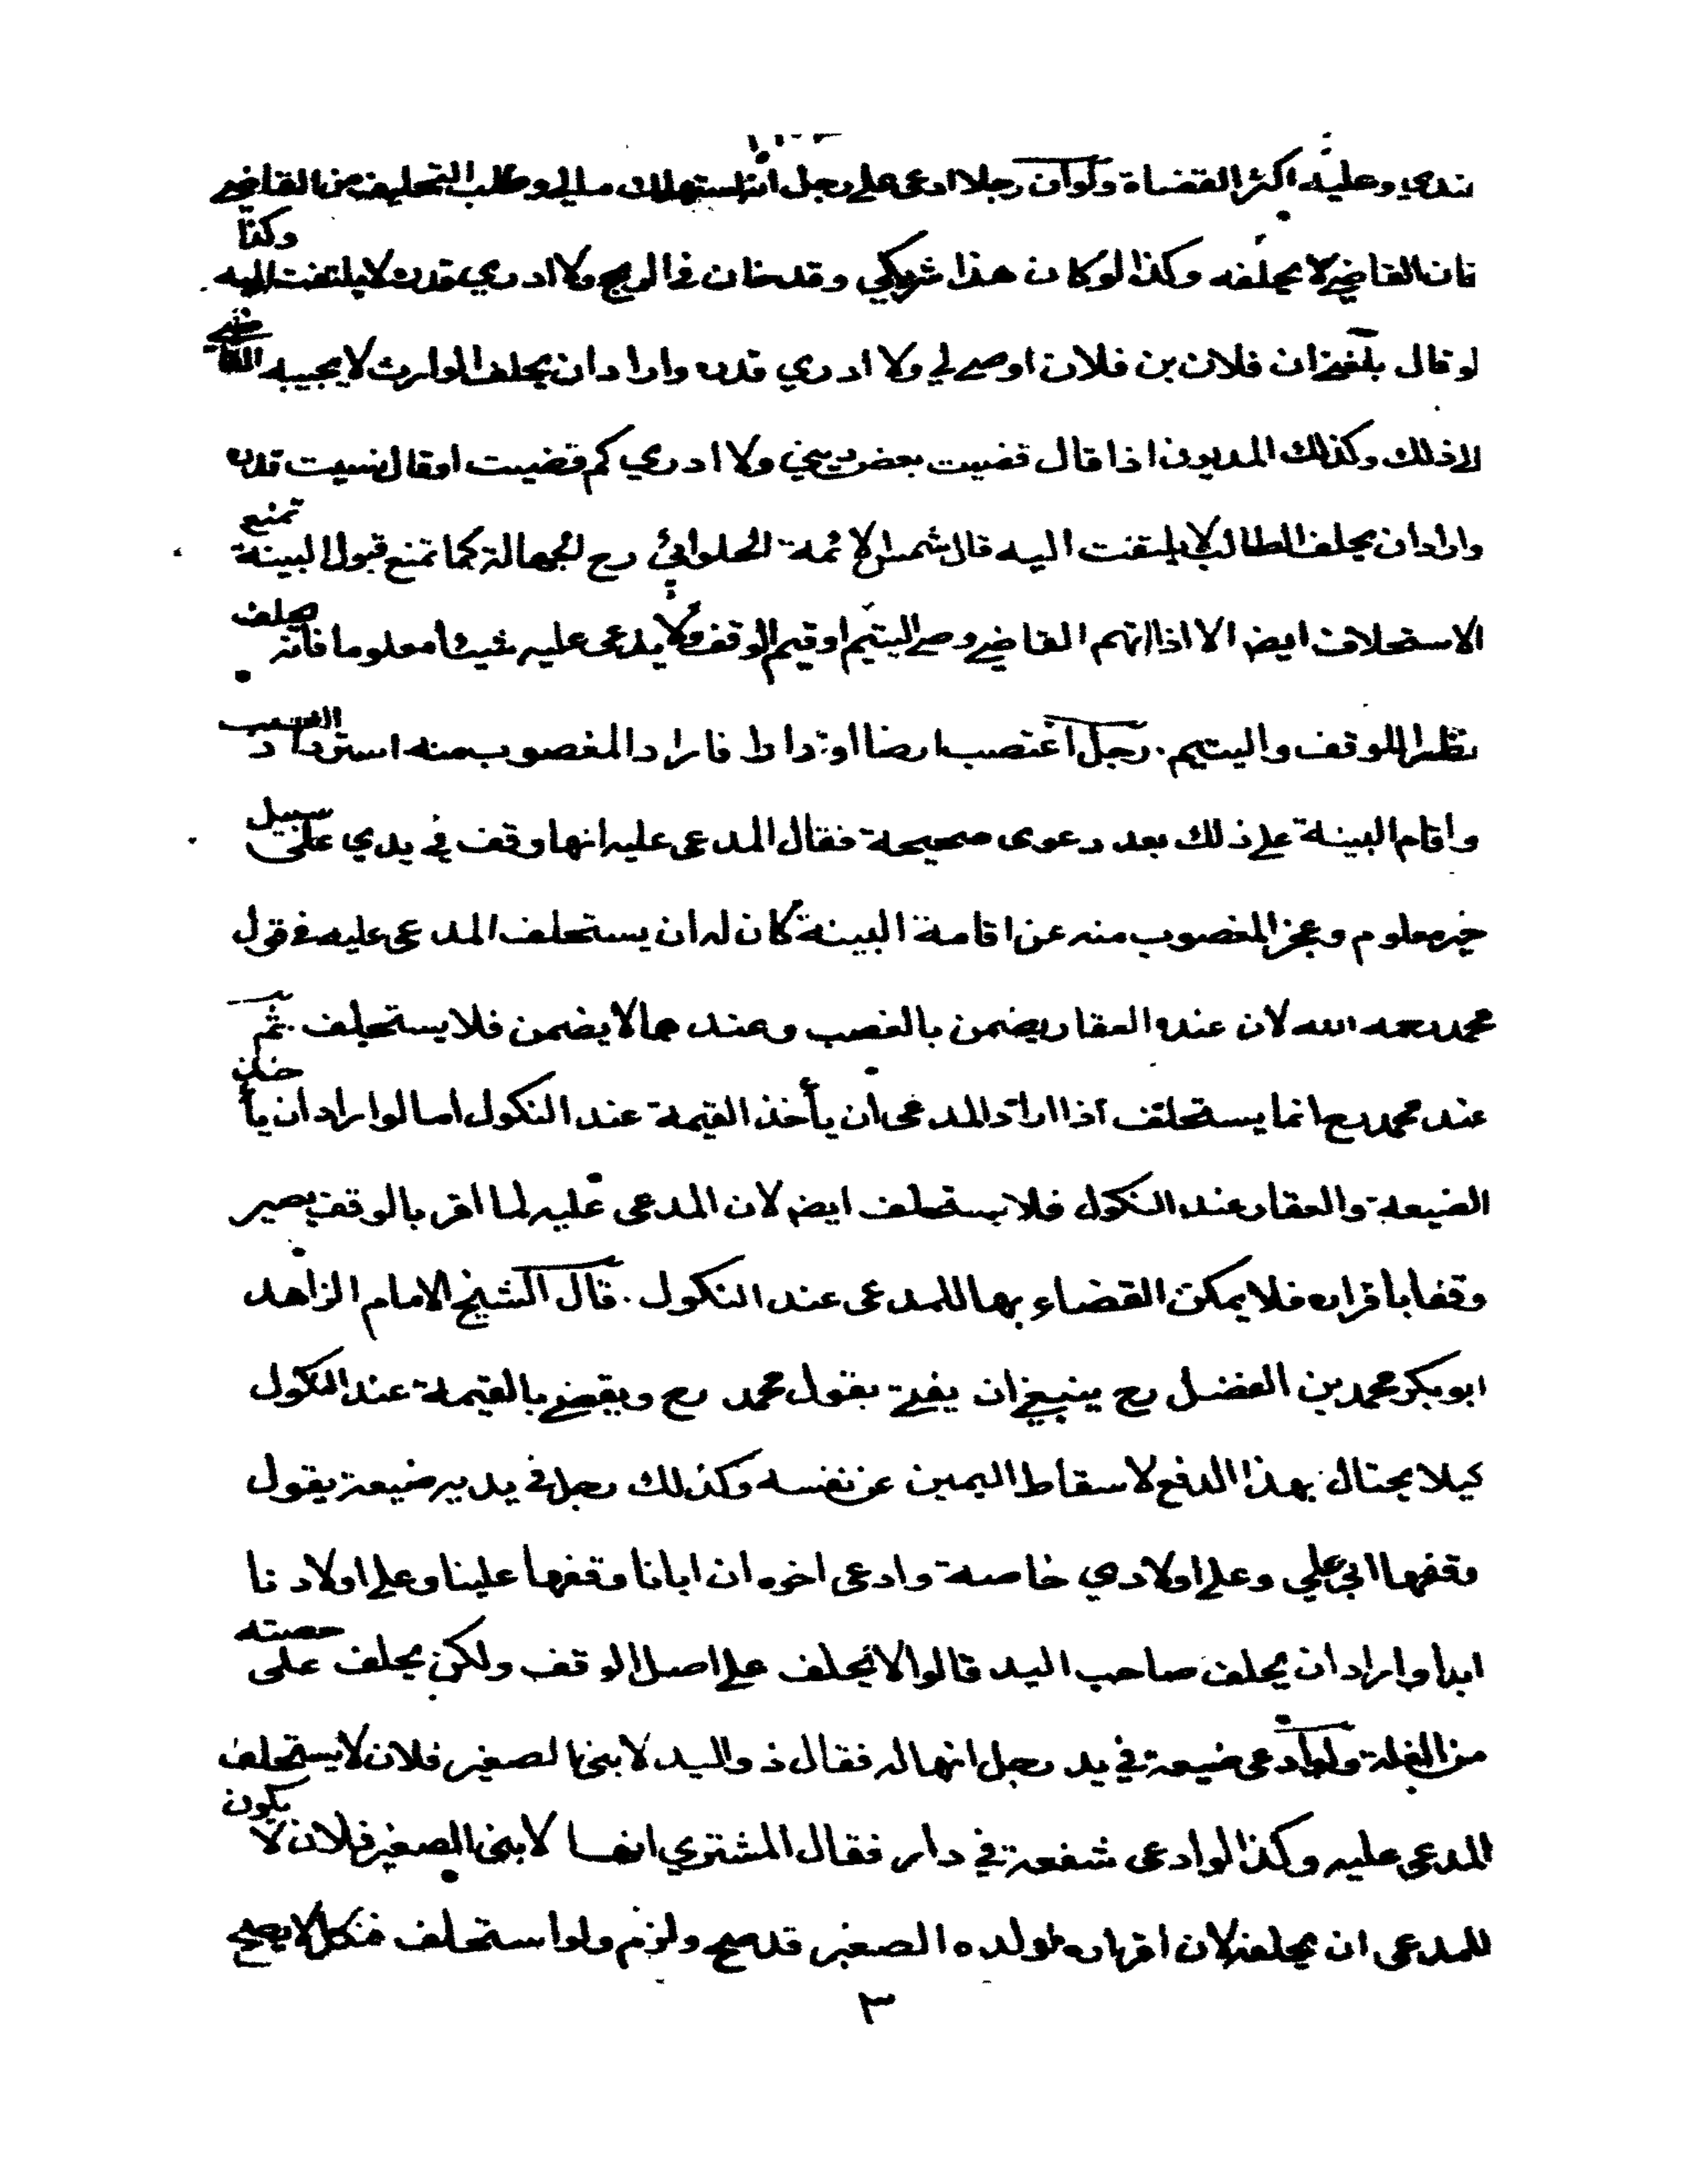 عندي وعليه اكثر القضاة ولو ان رجلا ادعى على رجل انه استهلك مالي وطلب التحليف من القاضي
فان القاضي لا يحلفه وكذا لو كان هذا شريكي وقد خان في الربح ولا ادري قدره لا يلتفت اليه وكذا
لو قال بلغني ان فلان بن فلان اوصى لي ولا ادري قدره واراد ان يحلف الوارث لا يجيبه القاضي
الى ذلك وكذلك المديون اذا قال قضيت بعض ديني ولا ادري كم قضيت او قال نسيت قدره
واراد ان يحلف الطالب لا يلتفت اليه قال شمس الائمة الحلوائي رح الجهالة كما تمنع قبول البينة تمنع
الاستحلاف ايض الا اذا اتهم القاضي وصي اليتيم او قيم الوقف ولا يدعى عليه شيئا معلوما فانه يحلف
نظرا للوقف واليتيم . رجل اغتصب ارضا او دارا فاراد المغصوب منه استرداد الغصب
واقام البينة على ذلك بعد دعوى صحيحة فقال المدعى عليه انها وقف في يدي على سبيل
خير معلوم وعجز المغصوب منه عن اقامة البينة كان له ان يستحلف المدعى عليه في قول
محمد رحمه الله لان عنده العقار يضمن بالغصب وعندهما لا يضمن فلا يستحلف . ثم
عند محمد رح انما يستحلف اذا اراد المدعي ان يأخذ القيمة عند النكول اما لو اراد ان يأخذ
الضيعة والعقار عند النكول فلا يستحلف ايض لان المدعى عليه لما اقر بالوقف يصير
وقفا باقراره فلا يمكن القضاء بها للمدعي عند النكول . قال الشيخ الامام الزاهد
ابو بكر محمد بن الفضل رح ينبغي ان يفتى بقول محمد رح ويقضى بالقيمة عند النكول
كيلا يحتال بهذا الدفع لاسقاط اليمين عن نفسه وكذلك رجل في يديه ضيعة يقول
وقفها ابي علي وعلى اولادي خاصة وادعى اخوه ان ابانا وقفها علينا وعلى اولادنا
ابدا واراد ان يحلف صاحب اليد قالوا لا يحلف على اصل الوقف ولكن يحلف على حصته
من الغلة ولو ادعى ضيعة في يد رجل انها له فقال ذو اليد لابني الصغير فلان لا يستحلف
المدعى عليه وكذا لو ادعى شفعة في دار فقال المشتري انها لابني الصغير فلان لا يكون
للمدعي ان يحلفه لان اقراره لولده الصغير قد صح ولزم ولو استحلف فنكل لا يصح
٣